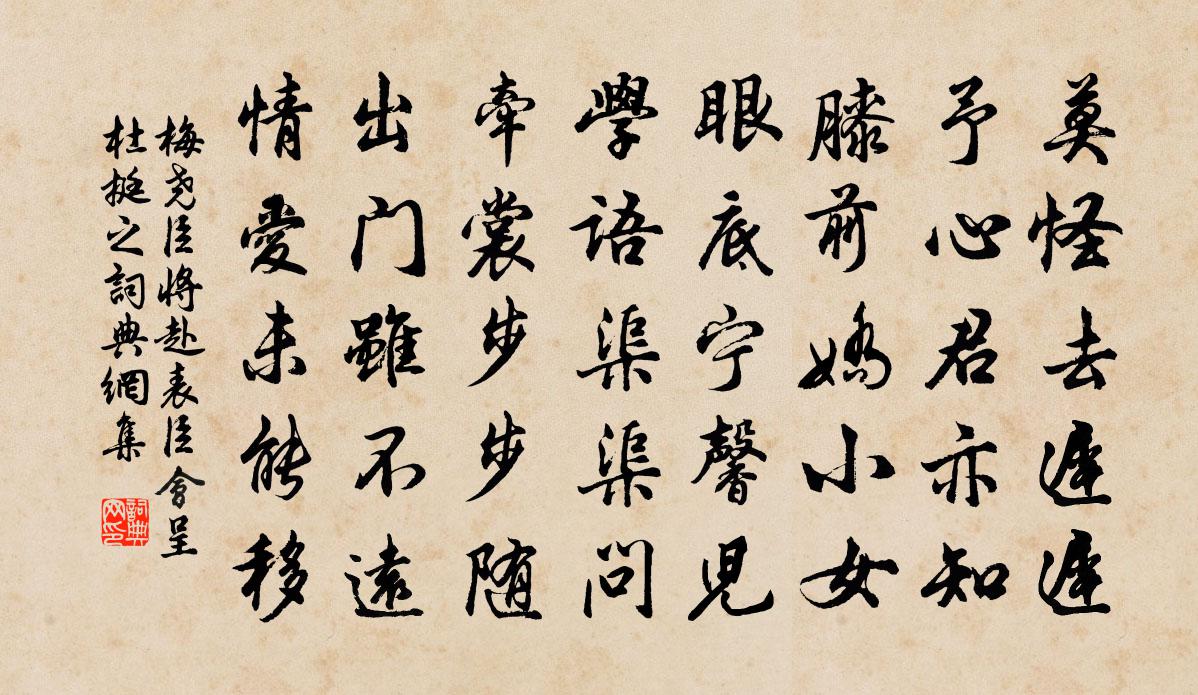 莫怪去遲遲
予心君亦知
膝前嬌小女
眼底宁馨児
學語渠渠問
牽裳步步随
出门雖不遠
情愛未能移
梅尧臣將赴表臣會呈
杜挺之詞典網集
詞典网印